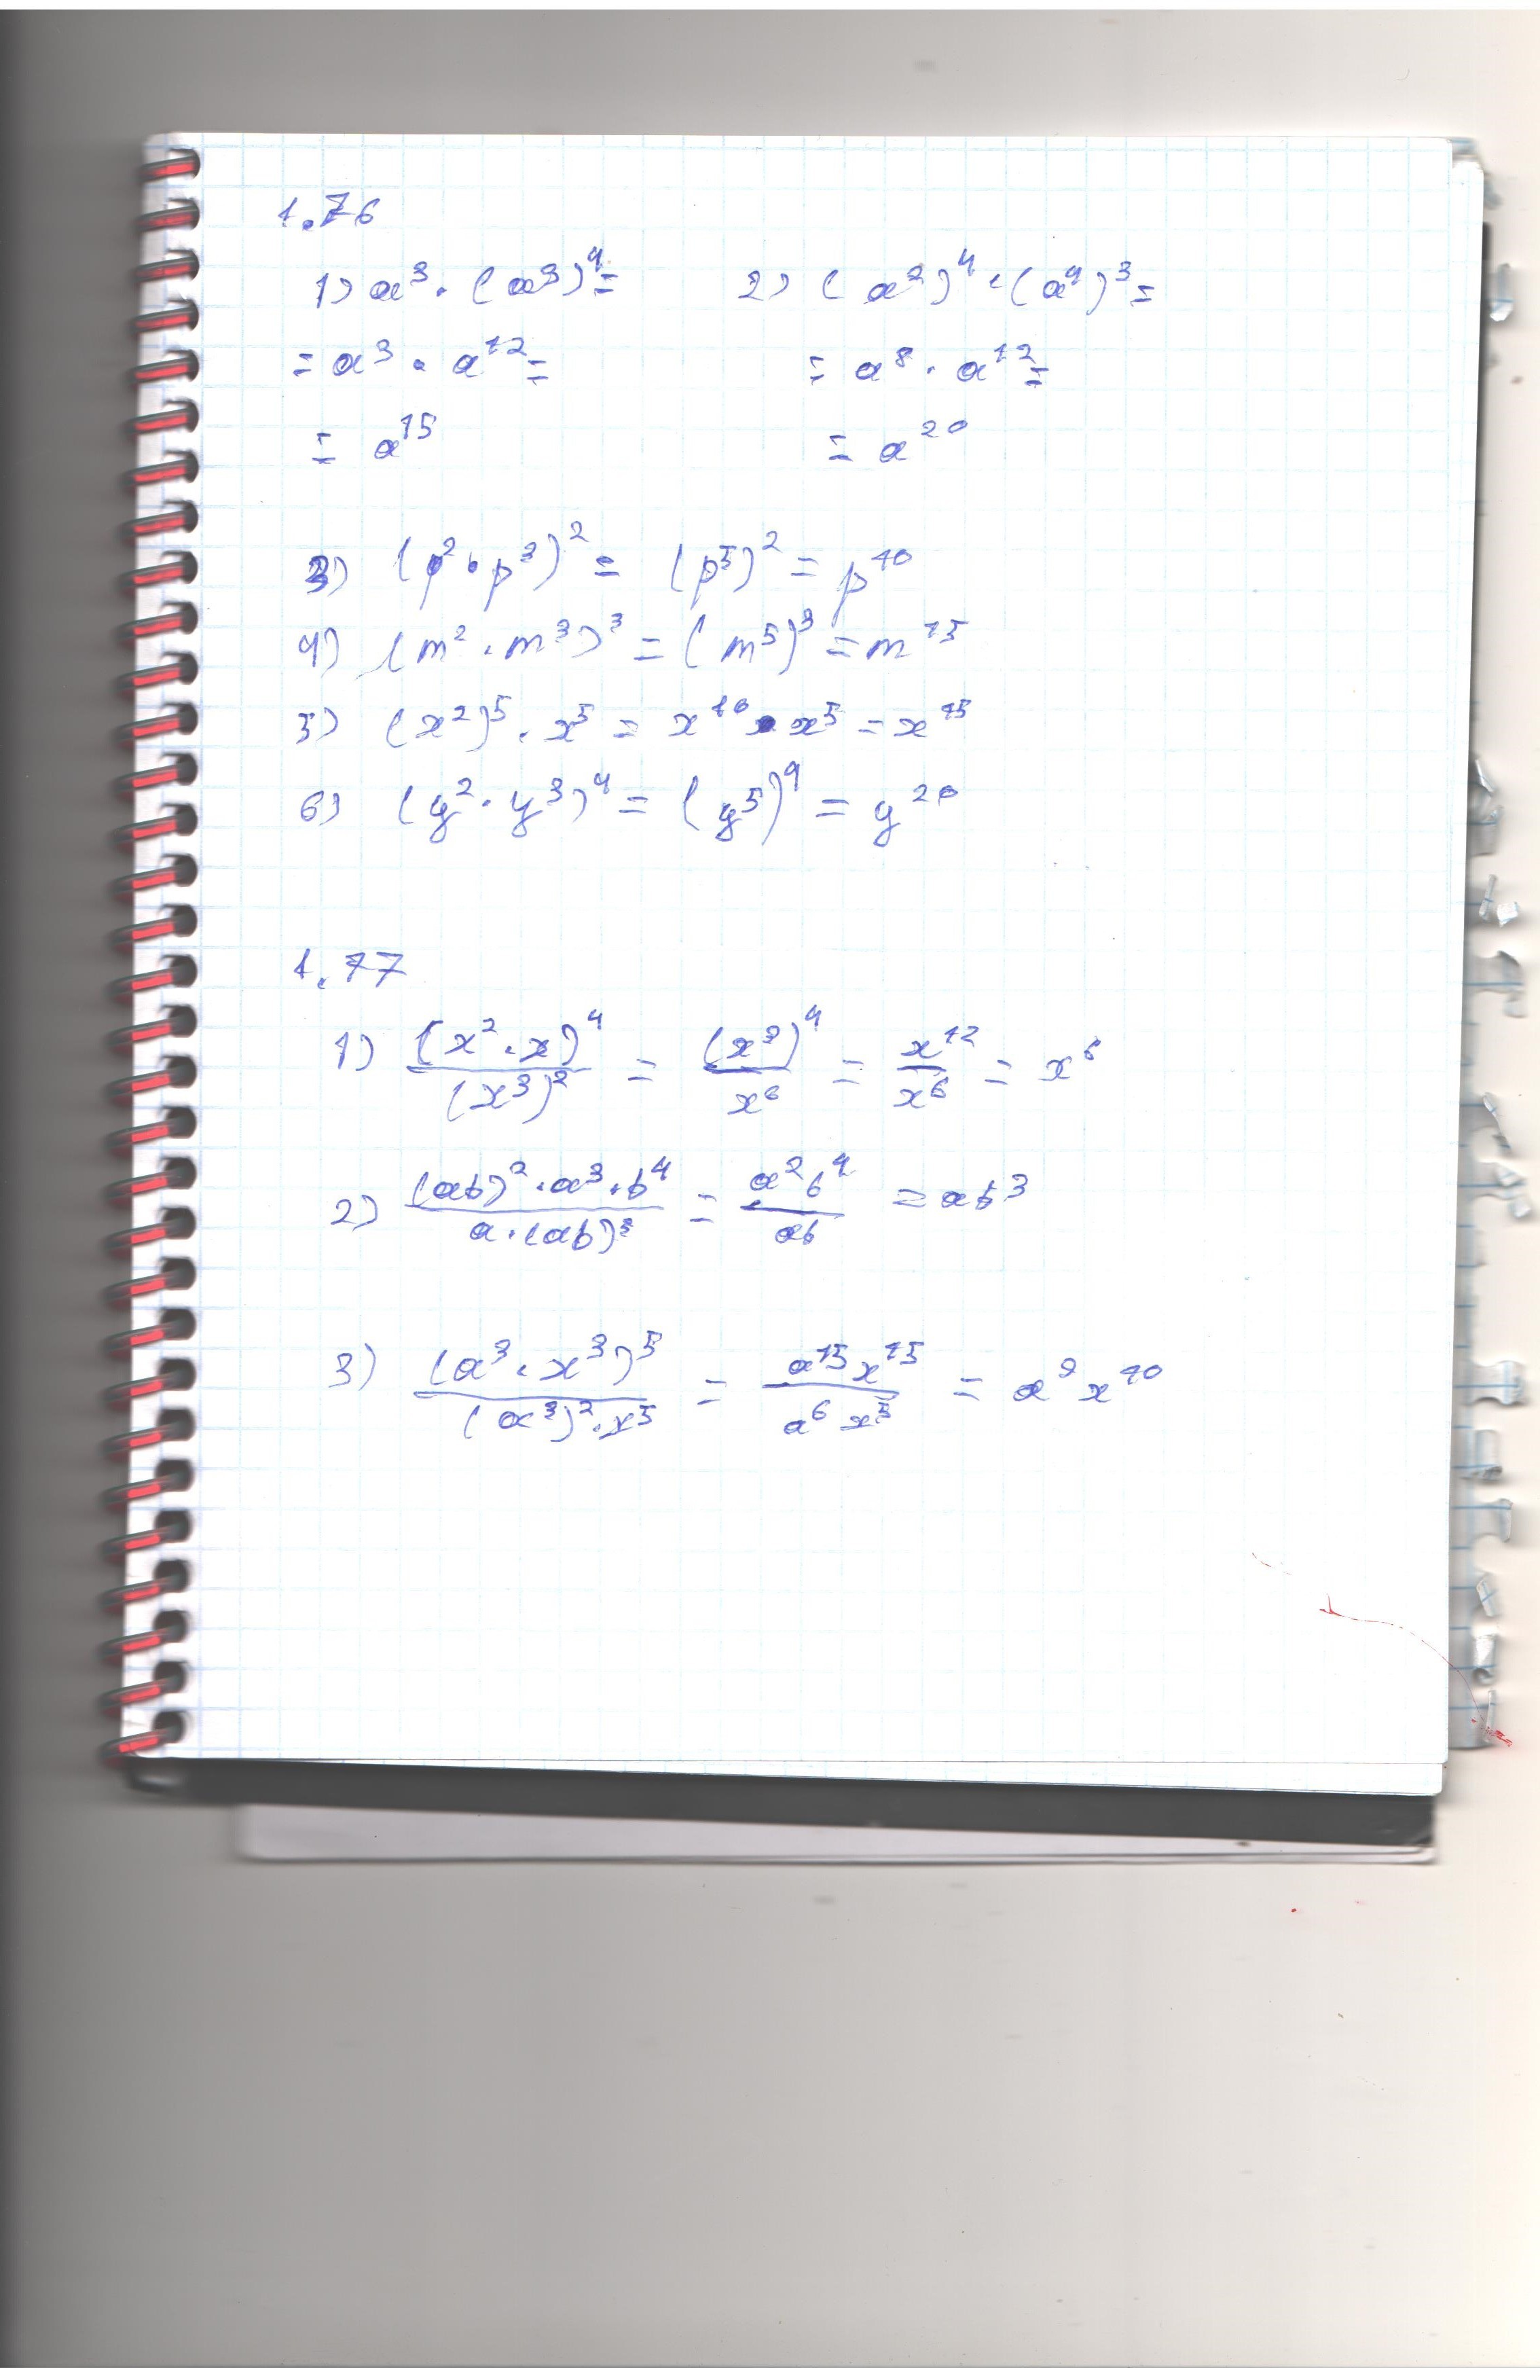 1.76
1) a³ · (a³)⁴ = 2) (a²)⁴ · (a⁴)³ =
= a³ · a¹² = = a⁸ · a¹² =
= a¹⁵ = a²⁰
3) (p² · p³)² = (p⁵)² = p¹⁰
4) (m² · m³)³ = (m⁵)³ = m¹⁵
5) (x²)⁵ · x⁵ = x¹⁰ · x⁵ = x¹⁵
6) (y² · y³)⁴ = (y⁵)⁴ = y²⁰
1.77
1) (x² · x)⁴ / (x³)² = (x³)⁴ / x⁶ = x¹² / x⁶ = x⁶
2) (ab)² · a³ · b⁴ / a · (ab)³ = a²b⁴ / ab = ab³
3) (a³ · x³)⁵ / (a³)² · x⁵ = a¹⁵x¹⁵ / a⁶x⁵ = a⁹x¹⁰